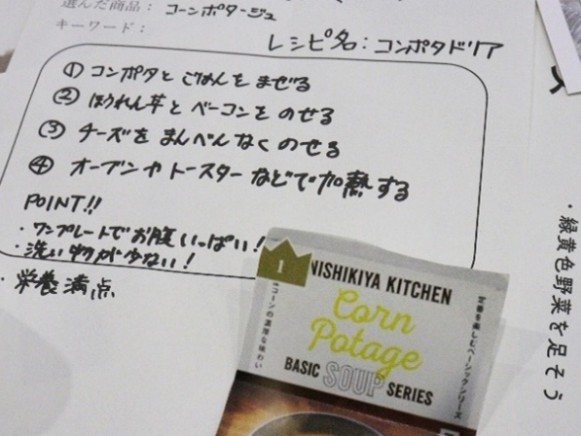 選んだ商品: コーンポタージュ
キーワード:
レシピ名: コンポタドリア
① コンポタと ごはんを まぜる
② ほうれん草と ベーコンを のせる
③ チーズを まんべんなく のせる
④ オーブンや トースター などで 加熱する
POINT!!
・ワンプレートで お腹いっぱい!
・洗い物が少ない!
・栄養満点
・緑黄色野菜を足そう
1
NISHIKIYA KITCHEN
Corn
Potage
BASIC SOUP SERIES
コーンの濃厚な味わい
定番を楽しむベーシックシリーズ